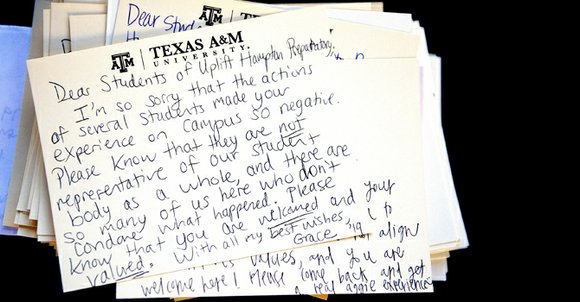 Dear Stud
Dear Stude
ATM | TEXAS A&M
UNIVERSITY
Dear Students of Uplift Hampton Preparatory,
I'm so sorry that the actions
of several students made your
experience on campus so negative.
Please know that they are not
representative of our student
body as a whole, and there are
so many of us here who don't
condone what happened. Please
know that you are welcomed and your
valued. With all my best wishes,
Grace, '19
align
values, and you are
welcome here! Please come back and get
a real aggie experience